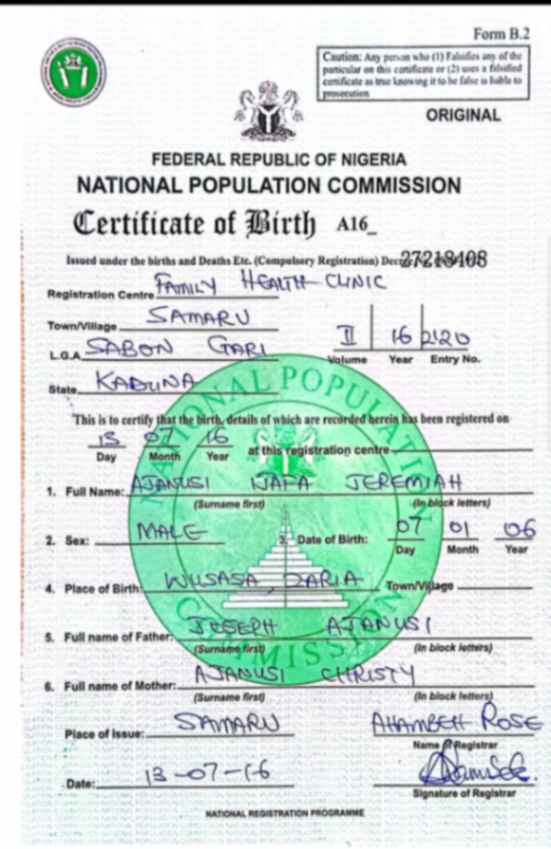 Form B.2
Caution: Any person who (1) Falsifies any of the
particular on this certificate or (2) uses a falsified
certificate as true knowing it to be false is liable to
prosecution
ORIGINAL
FEDERAL REPUBLIC OF NIGERIA
NATIONAL POPULATION COMMISSION
Certificate of Birth A16_
Issued under the births and Deaths Etc. (Compulsory Registration) 27218408
Registration Centre FAMILY HEALTH CLINIC
Town/Village SAMARU
L.G.A. SABON GARI
II 16 2120
Volume Year Entry No.
State KADUNA
This is to certify that the birth, details of which are recorded herein has been registered on
13 07 16 at this registration centre
Day Month Year
1. Full Name: AJANUSI JEREMIAH
(Surname first) (In block letters)
2. Sex: MALE 3. Date of Birth: 07 01 06
Day Month Year
4. Place of Birth: WUSASA, ZARIA Town/Village
5. Full name of Father: JOSEPH AJANUSI
(Surname first) (In block letters)
6. Full name of Mother: AJANUSI CHRISTY
(Surname first) (In block letters)
Place of Issue: SAMARU ROSE
Name of Registrar
Date: 13-07-16
Signature of Registrar
NATIONAL REGISTRATION PROGRAMME
NATIONAL POPULATION COMMISSION